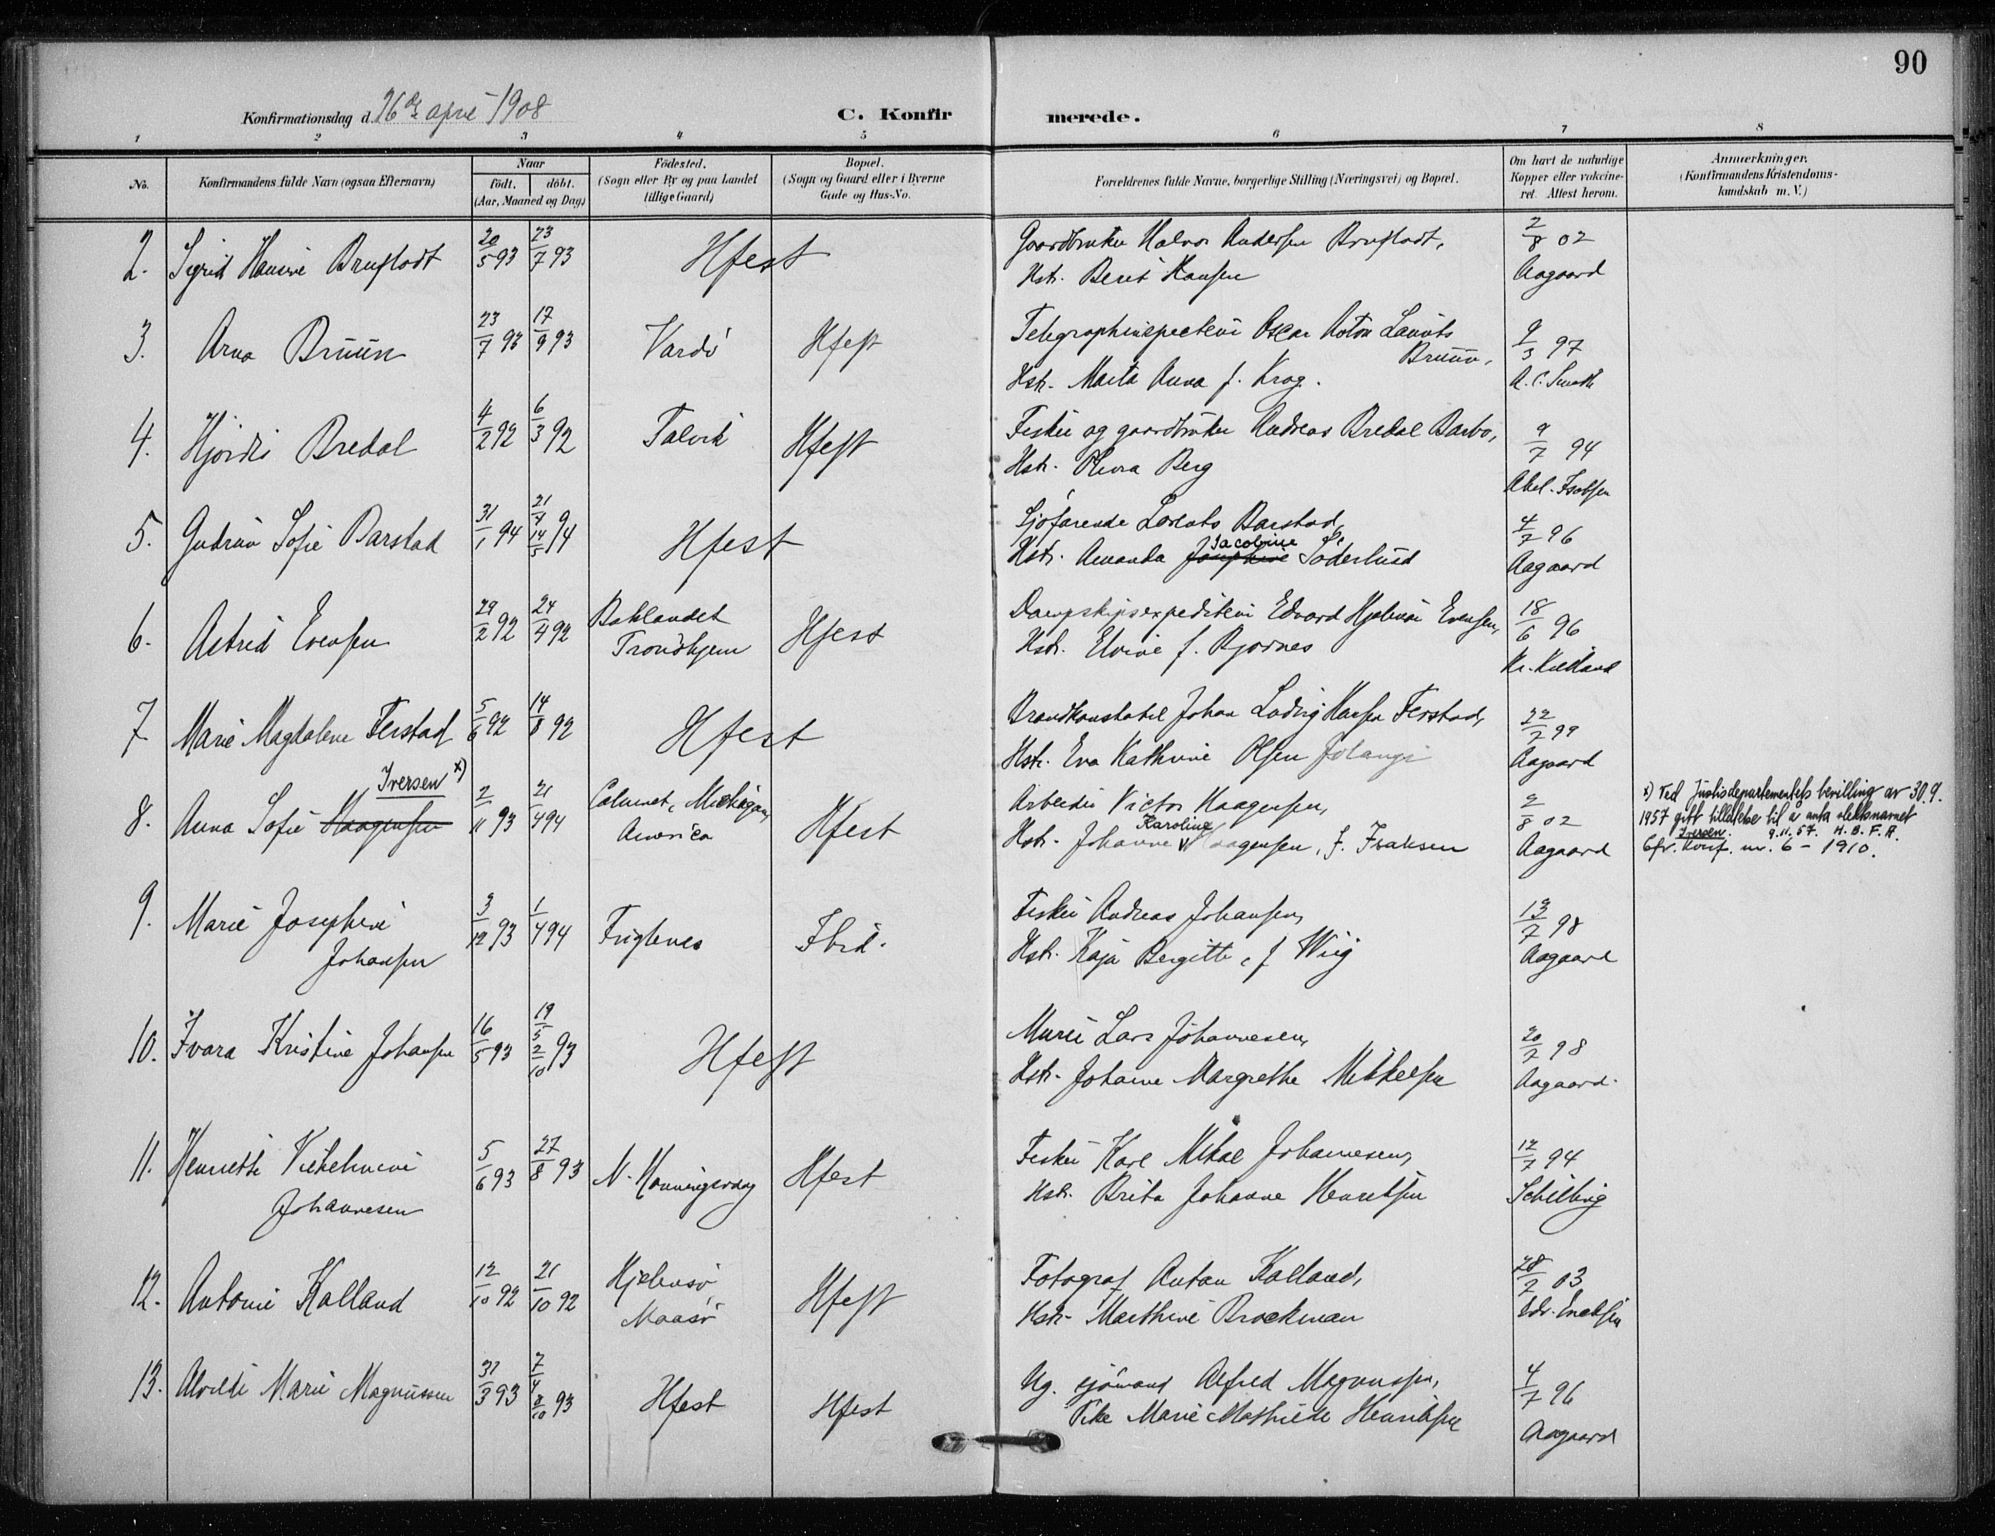 90
Konfirmationsdag d. 26de april 1908
C. Konfirmerede.
1 2 3 4 5 6 7 8
No. Konfirmandens fulde Navn (ogsaa Efternavn) Naar födt. döbt. (Aar, Maaned og Dag) Födested. (Sogn eller By og paa Landet tillige Gaard) Bopæl. (Sogn og Gaard eller i Byerne Gade og Hus-No. Forældrenes fulde Navne, borgerlige Stilling (Næringsvei) og Bopæl. Om havt de naturlige Kopper eller vakcineret. Attest herom. Anmærkninger. (Konfirmandens Kristendomskundskab m. V.)
2. Sigrid Hansine Brustadt 20/5 93 23/7 93 Hfest Gaardbruker Halvor Andersen Brustadt, 2/8 02
Hstr. Berit Hansen Aagaard
3. Arna Bruun 23/7 93 17/9 93 Vardö Hfest Telegrafinspecteur Oscar Anton Laurits Bruun, 9/3 97
Hstr. Marta Anna f. Krog.
4. Hjördis Bredal 4/2 92 6/3 92 Talvik Hfest Fisker og gaardbruker Andreas Bredal Barbo, 9/7 94
Hstr. Olivia Berg
5. Gudrun Sofie Barstad 31/1 94 21/4 14/5 94 Hfest Sjöfarende Lorents Barstad, 4/7 96
Hstr. Amanda Josephine Jacobine Söderlund Aagaard
6. Astrid Evensen 29/2 92 24/4 92 Baklandet Trondhjem Hfest Dampskipsexpediteur Edvard Hjelmar Evensen, 18/6 96
Hstr. Elvine f. Bjørnes
7 Marie Magdalene Ferstad 5/6 92 14/8 92 Hfest Brandkonstabel Johan Ludvig Hansen Ferstad, 22/7 99
Hstr. Eva Kathrine Olsen Aagaard
Iversen x)
8. Anna Sofie Haagensen 2/11 93 21/4 94 Calumet, Michigan, America Hfest Arbeider Victor Haagensen, 2/8 02
Hstr. Johanne Karoline Haagensen, f. Isaksen Aagaard
x) Ved Justisdepartementets bevilling av 30.9.
1957 gitt tillatelse til å anta slektsnavnet
Iversen. 9.11.57. H.B.F.A.
Cfr. Konf. nr. 6 - 1910.
9. Marie Josephine Johansen 3/12 93 1/4 94 Fuglenes Ibid. Fisker Andreas Johansen, 13/7 98
Hstr. Kaja Bergitte, f Wiig Aagaard
10. Ivara Kristine Johansen 16/5 93 19/5 2/10 93 Hfest Murer Lars Johannesen, 20/7 98
Hstr. Johanne Margrethe Mikkelsen Aagaard.
11. Henriette Vilhelmine Johannesen 5/6 93 27/8 93 N. Honningsvaag Hfest Fisker Karl Mikal Johannesen, 12/7 94
Hstr. Brita Johanne Henriksen Schilling
12. Antonie Kalland 12/10 92 21/10 92 Hjelmsö, Maasö Hfest Fotograf Anton Kalland, 28/2 03
Hstr. Marthine Brockman
13. Alvilde Marie Magnussen 31/3 93 7/4 2/10 93 Hfest Hfest Ug. sjömand Alfred Magnussen, 4/7 96
Pike Marie Mathilde Henriksen Aagaard